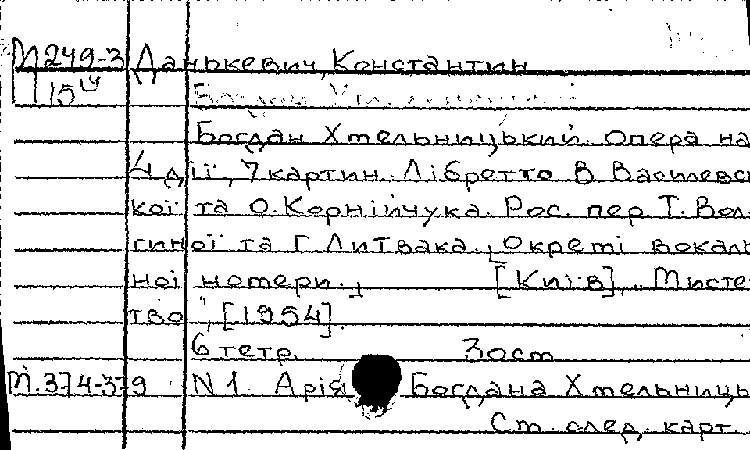 М249-3 Данькевич, Константин
15
Богдан Хмельницький. Опера на
4 дії, 7 картин. Лібретто В. Василевс
кої та О. Корнійчука. Рос. пер Т. Вол
гиної та Г. Литвака. [Окремі вокаль
ної номери.] [Київ], „Мисте
тво", [1954].
6 тетр. Зост
М.374-379 N 1. Арія Богдана Хмельниць
См. след. карт.